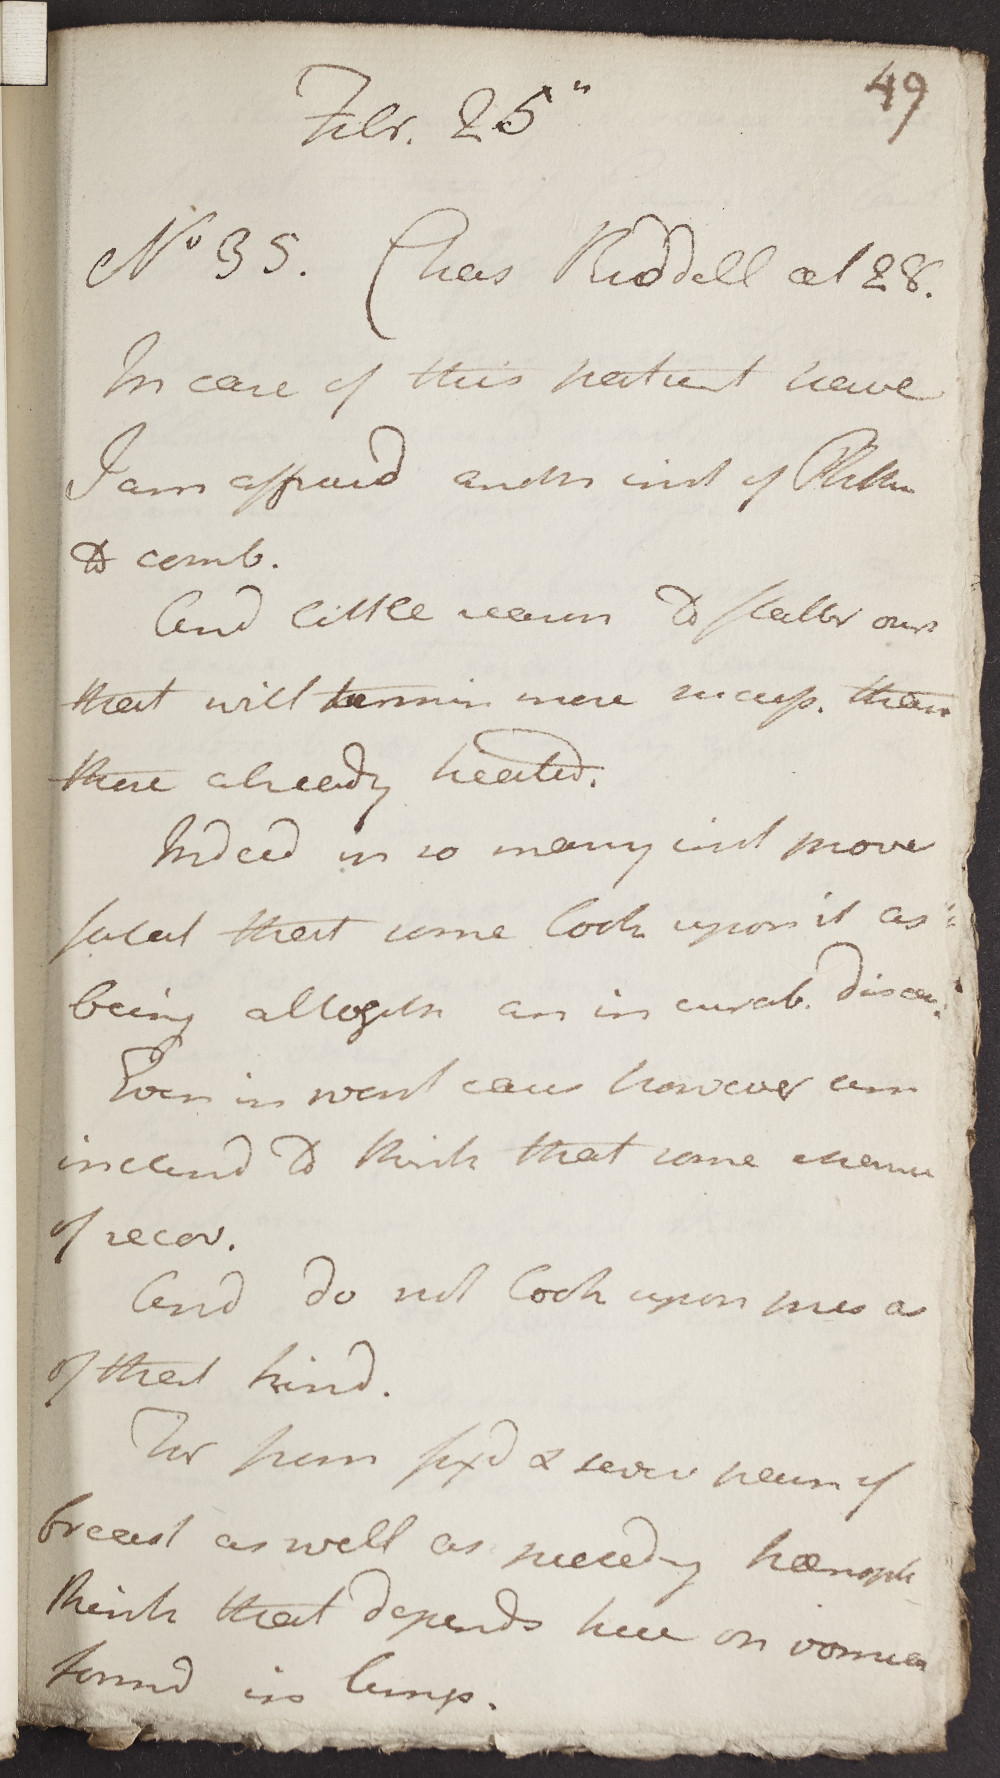 49
Febr. 25"
No 35. Chas Riddell æt 28.
In case of this patient have
I am affraid anoth inst of Phthis
to comb.
And little reason to flatter ours
that will termin more succesf. than
those already treated.
Indeed in so many inst prove
fatal that some look upon it as
being altogeth an in curab. disea.
Even in worst cases however am
inclend to think that some chance
of recov.
And do not look upon pres as
of that kind.
For from fixd & severe pain of
breast as well as preced-g hæmopt
think that depends here on vomica
formd in lungs.